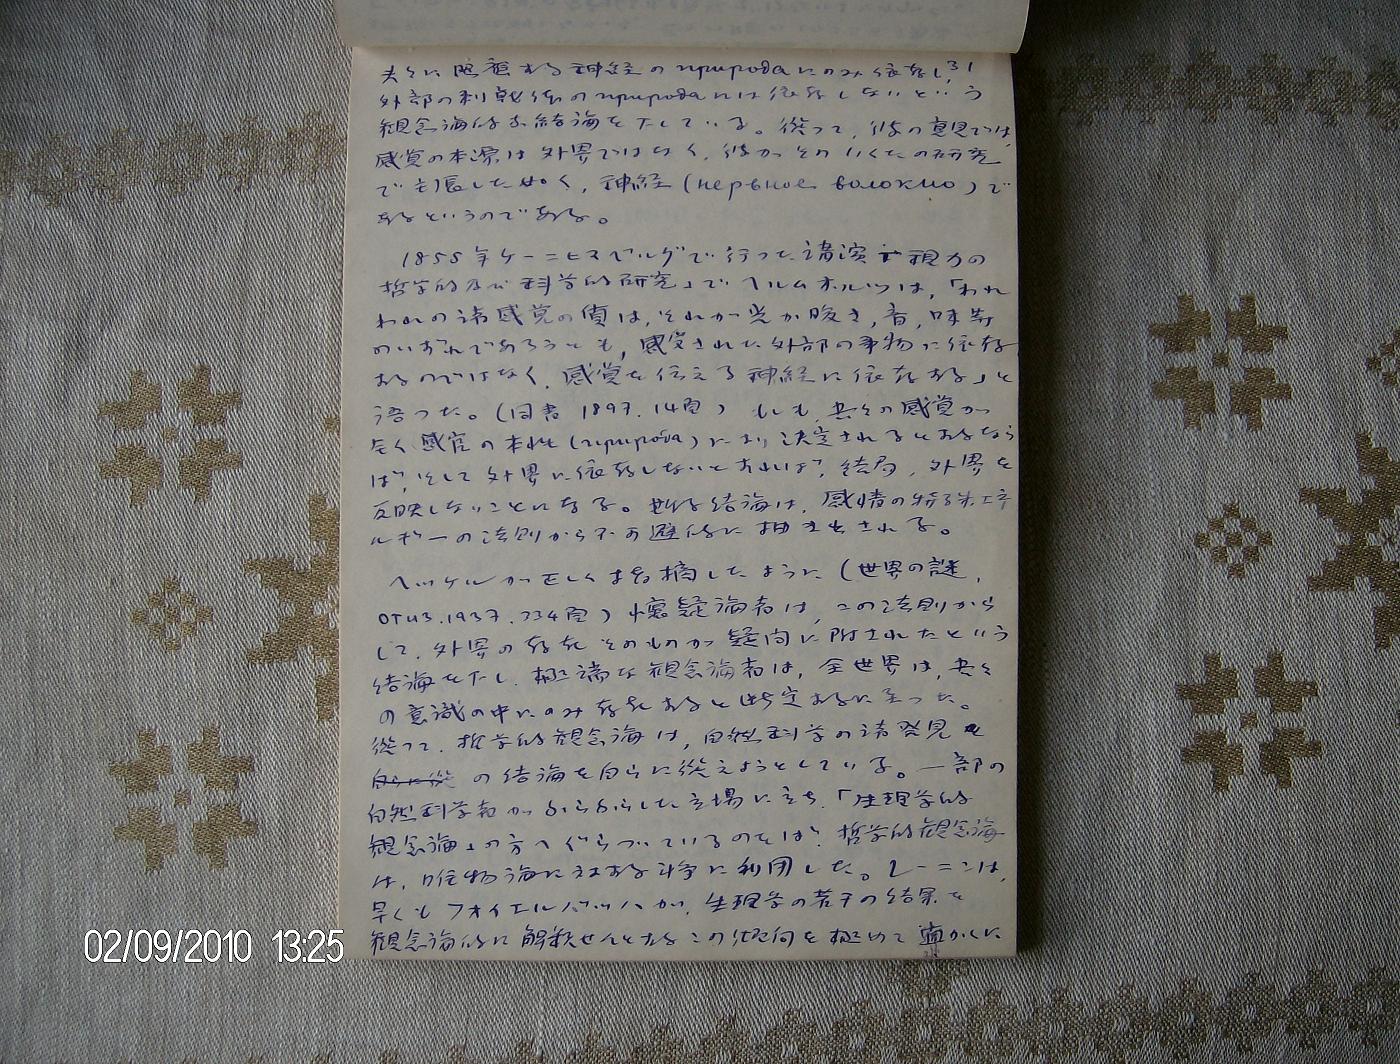 夫々に照應する神経の природа にのみ依存し, 31
外部の刺戟物の природа には依存しないという
観念論的な結論を下している。従って, 彼の意見では,
感覚の本源は外界ではなく, 彼がそのいくたの研究
で主張した如く, 神経 (нервное волокно) で
あるというのである。
1855年ケーニヒスベルグで行った講演「視力の
哲学的及び科学的研究」でヘルムホルツは,「われ
われの諸感覚の質は, それが光か暖き, 音, 味等
のいずれであろうとも, 感覚された外部の事物に依存
するのではなく, 感覚を伝える神経に依存する」と
語った。(同書 1897. 14頁) もしも, 夫々の感覚が
全く感官の本性 (природа) により決定されるとするなら
ば, そして外界に依存しないとすれば, 結局, 外界を
反映しないことになる。此る結論は, 感情の特殊エネ
ルギーの法則から不可避的に抽き出される。
ヘッケルが正しくも指摘したように (世界の謎,
ОГИЗ. 1937. 234頁) 懐疑論者は, この法則から
して, 外界の存在そのものが疑問に附されたという
結論を下し, 極端な観念論者は, 全世界は, 夫々
の意識の中にのみ存在すると断定するに至った。
従って, 哲学的観念論は, 自然科学の諸発見
自らに従 の結論を自らに従えようとしている。一部の
自然科学者がふらふらした立場に立ち,「生理学的
観念論」の方へぐらついているのをば, 哲学的観念論
は, 唯物論に対する斗争に利用した。レーニンは,
早くもフォイエルバッハが, 生理学の若干の結果を
観念論的に解釈せんとするこの傾向を極めて 確かに